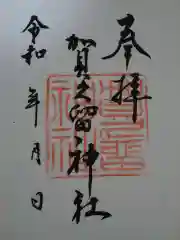 奉拝
加賀久留神社
令和 年 月 日